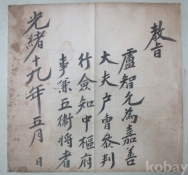 敎旨
盧智允爲嘉善
大夫戶曹參判
行僉知中樞府
事兼五衛將者
光緖十九年五月 日
kobay